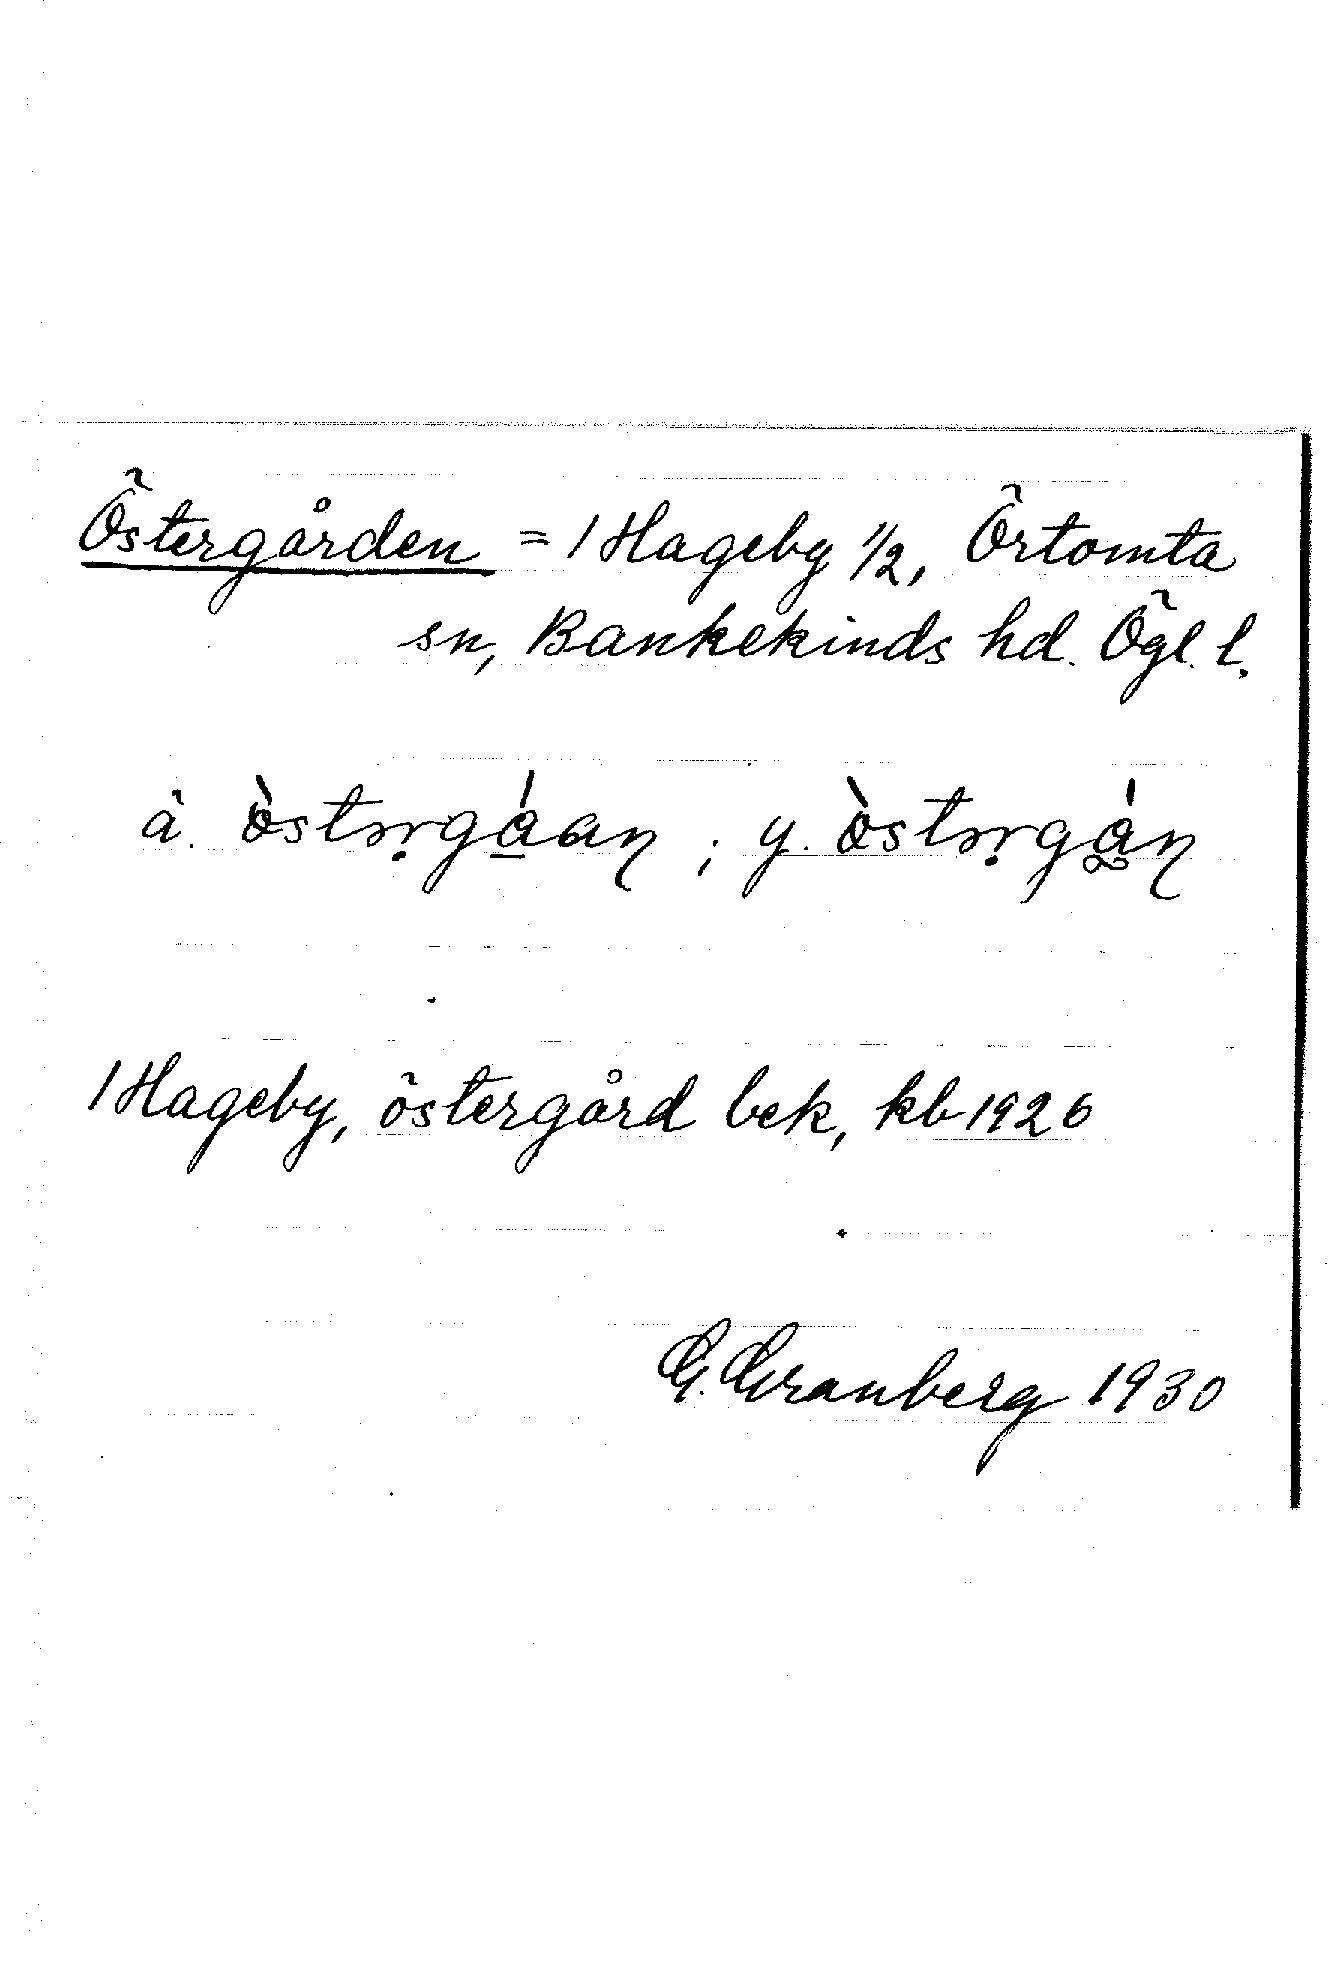 Östergården = 1 Hageby 1/2, Örtomta
sn, Bankekinds hd. Ögl. l.
ä. òstər̥gáan ; y. òstər̥gán
1 Hageby, östergård bek, kb 1926
G. Granberg 1930